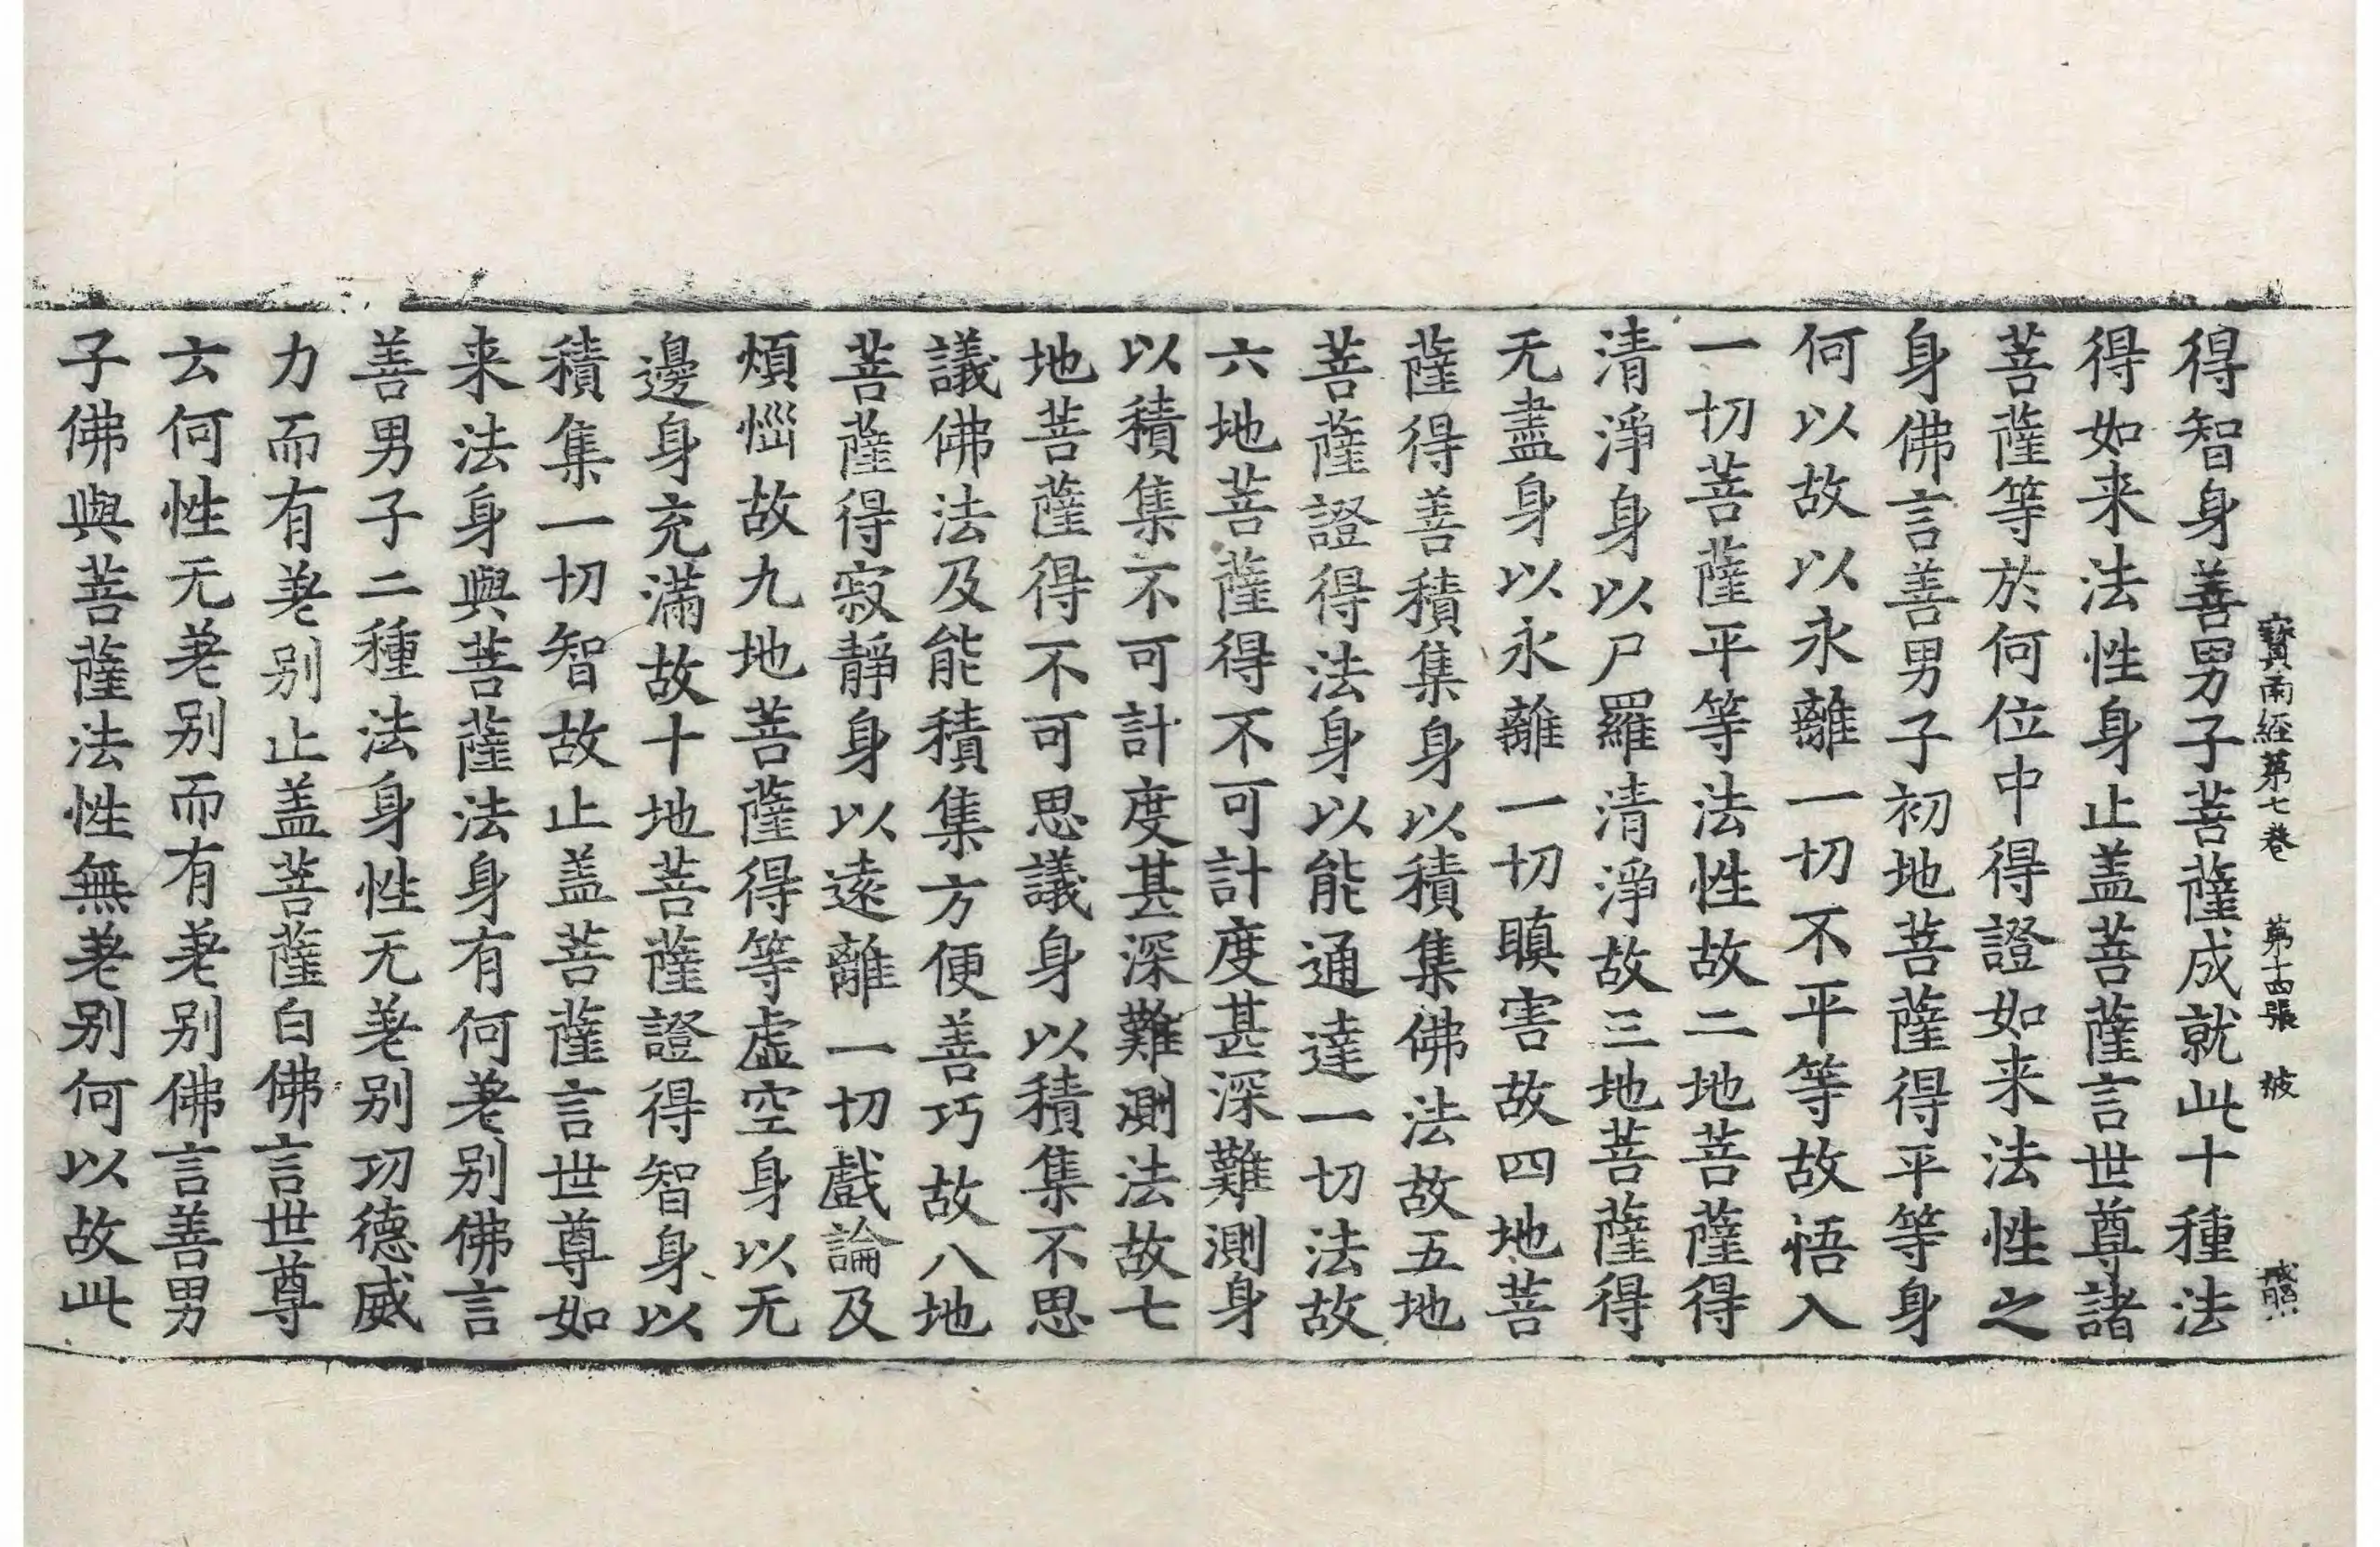 寶雨経第七巻 第十四張 被
得智身善男子菩薩成就此十種法
得如来法性身止盖菩薩言世尊諸
菩薩等於何位中得證如来法性之
身佛言善男子初地菩薩得平等身
何以故以永離一切不平等故悟入
一切菩薩平等法性故二地菩薩得
清淨身以尸羅清淨故三地菩薩得
无盡身以永離一切瞋害故四地菩
薩得善積集身以積集佛法故五地
菩薩證得法身以能通達一切法故
六地菩薩得不可計度甚深難測身
以積集不可計度甚深難測法故七
地菩薩得不可思議身以積集不思
議佛法及能積集方便善巧故八地
菩薩得寂靜身以遠離一切戲論及
煩惱故九地菩薩得等虛空身以无
邊身充滿故十地菩薩證得智身以
積集一切智故止盖菩薩言世尊如
来法身與菩薩法身有何差别佛言
善男子二種法身性无差别功德威
力而有差别止盖菩薩白佛言世尊
云何性无差别而有差别佛言善男
子佛與菩薩法性無差别何以故此